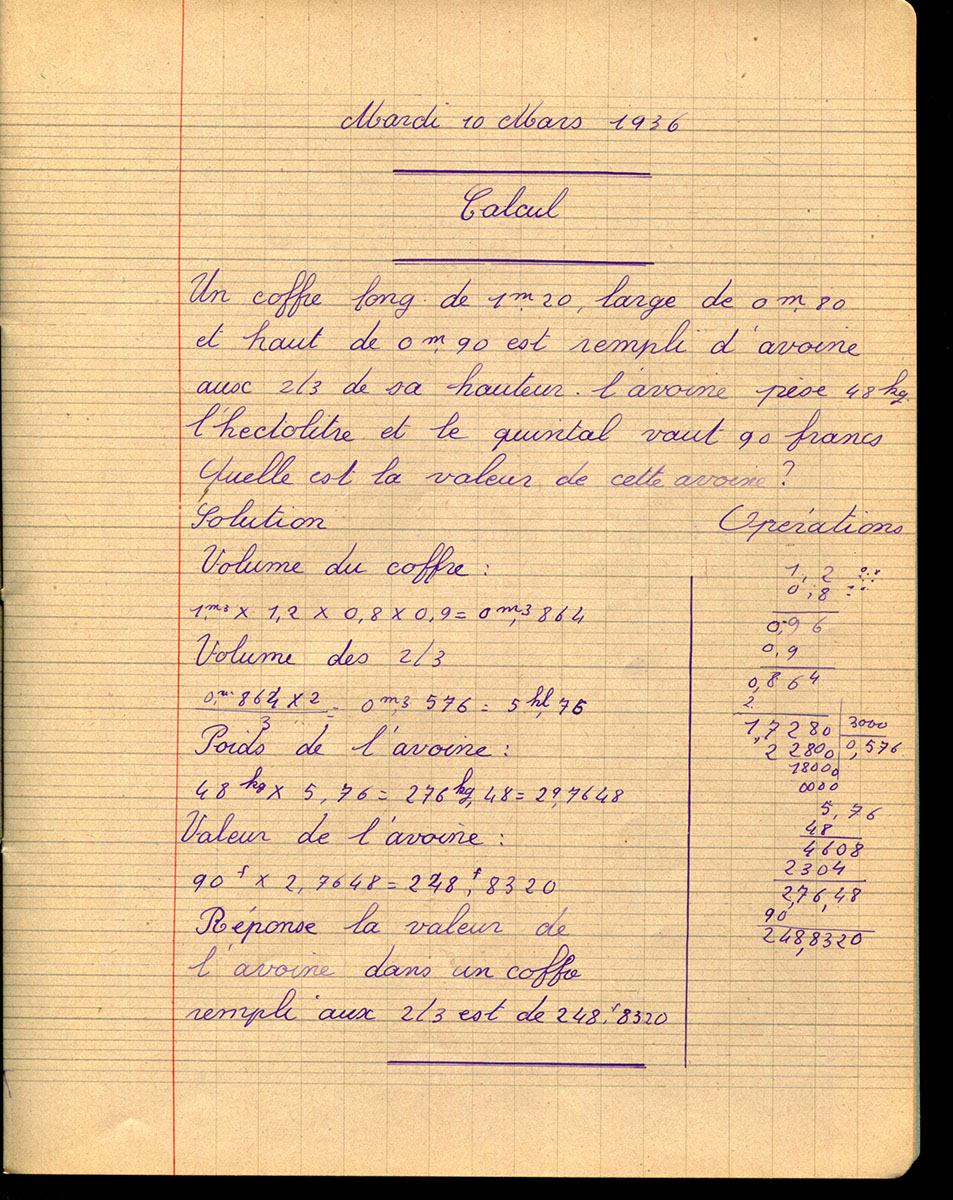 Mardi 10 Mars 1936
Calcul
Un coffre long de 1m,20, large de 0m,80
et haut de 0m,90 est rempli d'avoine
aux 2/3 de sa hauteur. l'avoine pèse 48kg
l'hectolitre et le quintal vaut 90 francs
Quelle est la valeur de cette avoine ?
Solution
Volume du coffre :
1m3 x 1,2 x 0,8 x 0,9 = 0m3,864
Volume des 2/3
0,m3 864 x 2 / 3 = 0m3 576 = 5hl,76
Poids de l'avoine :
48kg x 5,76 = 276kg,48 = 2q,7648
Valeur de l'avoine :
90f x 2,7648 = 248f,8320
Réponse la valeur de
l'avoine dans un coffre
rempli aux 2/3 est de 248f,8320
Opérations
1,2
0,8
0,96
0,9
0,864
2
1,7280 3000
2280 0,576
18000
0000
5,76
48
4608
2304
276,48
90
248,8320